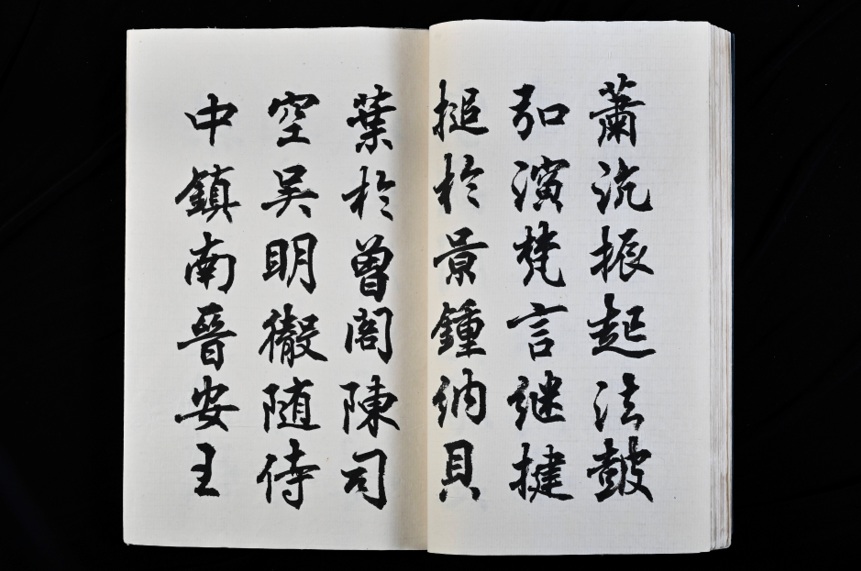 蕭沇振起法鼓
弘演梵言継揵
搥於景鍾納貝
葉於曾閣陳司
空吴明徹随侍
中鎮南晉安王